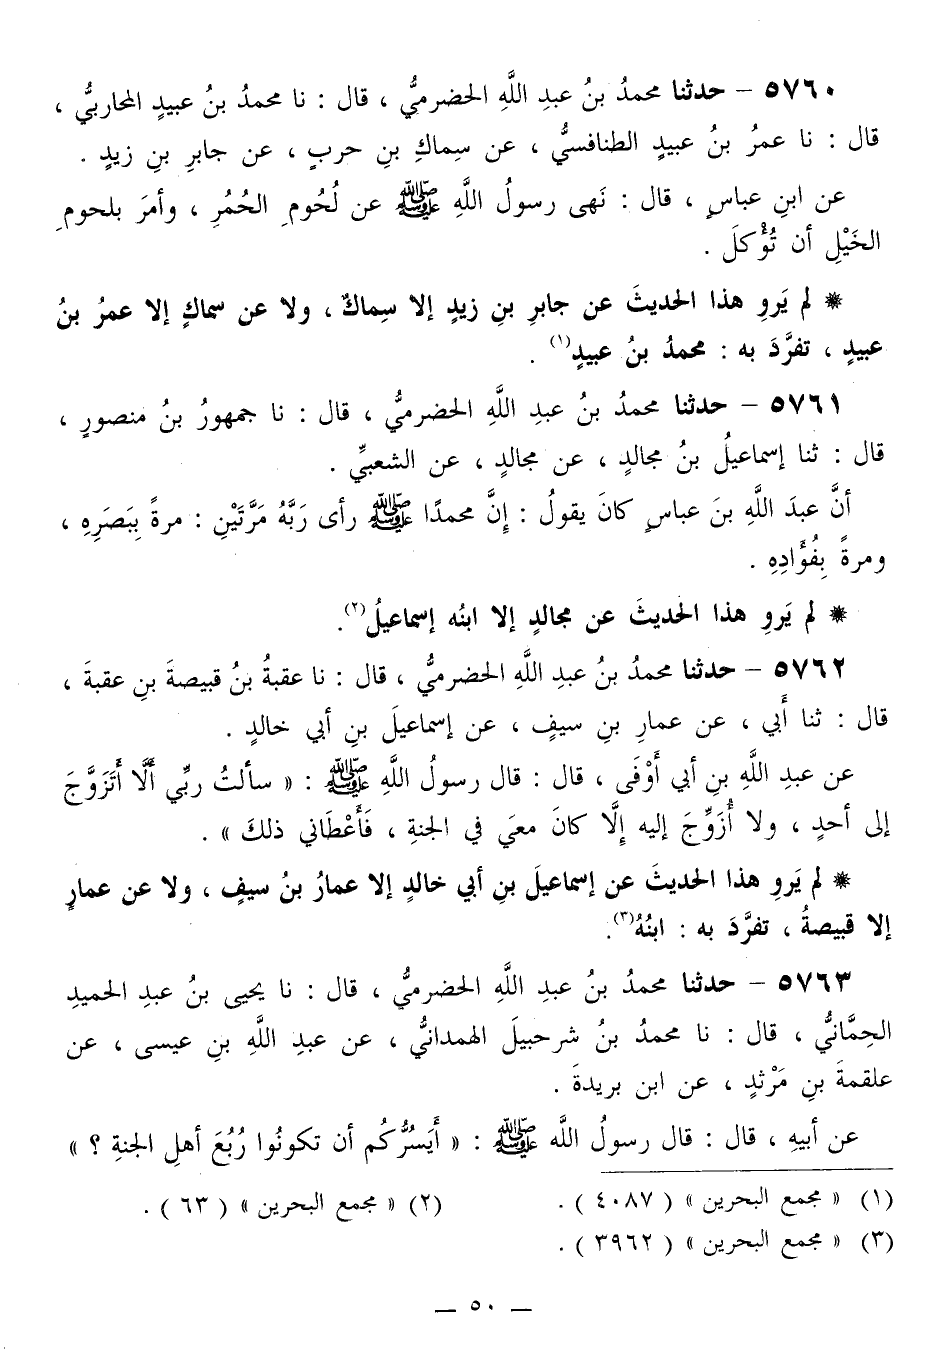 ٥٧٦٠ – حدثنا محمدُ بنُ عبدِ اللَّهِ الحضرميُّ ، قال : نا محمدُ بنُ عبيدٍ المحاربيُّ ،
قال : نا عمرُ بنُ عبيدٍ الطنافسيُّ ، عن سِماكِ بنِ حربٍ ، عن جابرِ بنِ زيدٍ .
عن ابنِ عباسٍ ، قال : نَهى رسولُ اللَّهِ ﷺ عن لُحُومِ الحُمُرِ ، وأمرَ بلحومِ
الخَيْلِ أن تُؤْكلَ .
* لم يَروِ هذا الحديثَ عن جابرِ بنِ زيدٍ إلا سِماكٌ ، ولا عن سماكٍ إلا عمرُ بنُ
عبيدٍ ، تفرَّدَ به : محمدُ بنُ عبيدٍ(١) .
٥٧٦١ – حدثنا محمدُ بنُ عبدِ اللَّهِ الحضرميُّ ، قال : نا جمهورُ بنُ منصورٍ ،
قال : ثنا إسماعيلُ بنُ مجالدٍ ، عن مجالدٍ ، عن الشعبيِّ .
أنَّ عبدَ اللَّهِ بنَ عباسٍ كانَ يقولُ : إنَّ محمدًا ﷺ رأى رَبَّهُ مَرَّتَيْنِ : مرةً بِبَصَرِهِ ،
ومرةً بِفُؤَادِهِ .
* لم يَروِ هذا الحديثَ عن مجالدٍ إلا ابنُه إسماعيلُ(٢).
٥٧٦٢ – حدثنا محمدُ بنُ عبدِ اللَّهِ الحضرميُّ ، قال : نا عقبةُ بنُ قبيصةَ بنِ عقبةَ ،
قال : ثنا أَبي ، عن عمارِ بنِ سيفٍ ، عن إسماعيلَ بنِ أبي خالدٍ .
عن عبدِ اللَّهِ بنِ أبي أَوْفَى ، قال : قال رسولُ اللَّهِ ﷺ : « سألتُ ربِّي أَلَّا أَتَزَوَّجَ
إلى أحدٍ ، ولا أُزَوِّجَ إليه إِلَّا كانَ معيَ في الجنةِ ، فَأَعْطَاني ذلكَ » .
* لم يَروِ هذا الحديثَ عن إسماعيلَ بنِ أبي خالدٍ إلا عمارُ بنُ سيفٍ ، ولا عن عمارٍ
إلا قبيصةُ ، تفرَّدَ به : ابنُهُ(٣).
٥٧٦٣ – حدثنا محمدُ بنُ عبدِ اللَّهِ الحضرميُّ ، قال : نا يحيى بنُ عبدِ الحميدِ
الحِمَّانيُّ ، قال : نا محمدُ بنُ شرحبيلَ الهمدانيُّ ، عن عبدِ اللَّهِ بنِ عيسى ، عن
علقمةَ بنِ مَرْثدٍ ، عن ابن بريدةَ .
عن أبيهِ ، قال : قال رسولُ اللَّه ﷺ : « أَيَسُرُّكُم أن تكونُوا رُبُعَ أهلِ الجنةِ ؟ »
(١) « مجمع البحرين » ( ٤٠٨٧ ) . (٢) « مجمع البحرين » ( ٦٣ ) .
(٣) « مجمع البحرين » ( ٣٩٦٢ ) .
— ٥٠ —